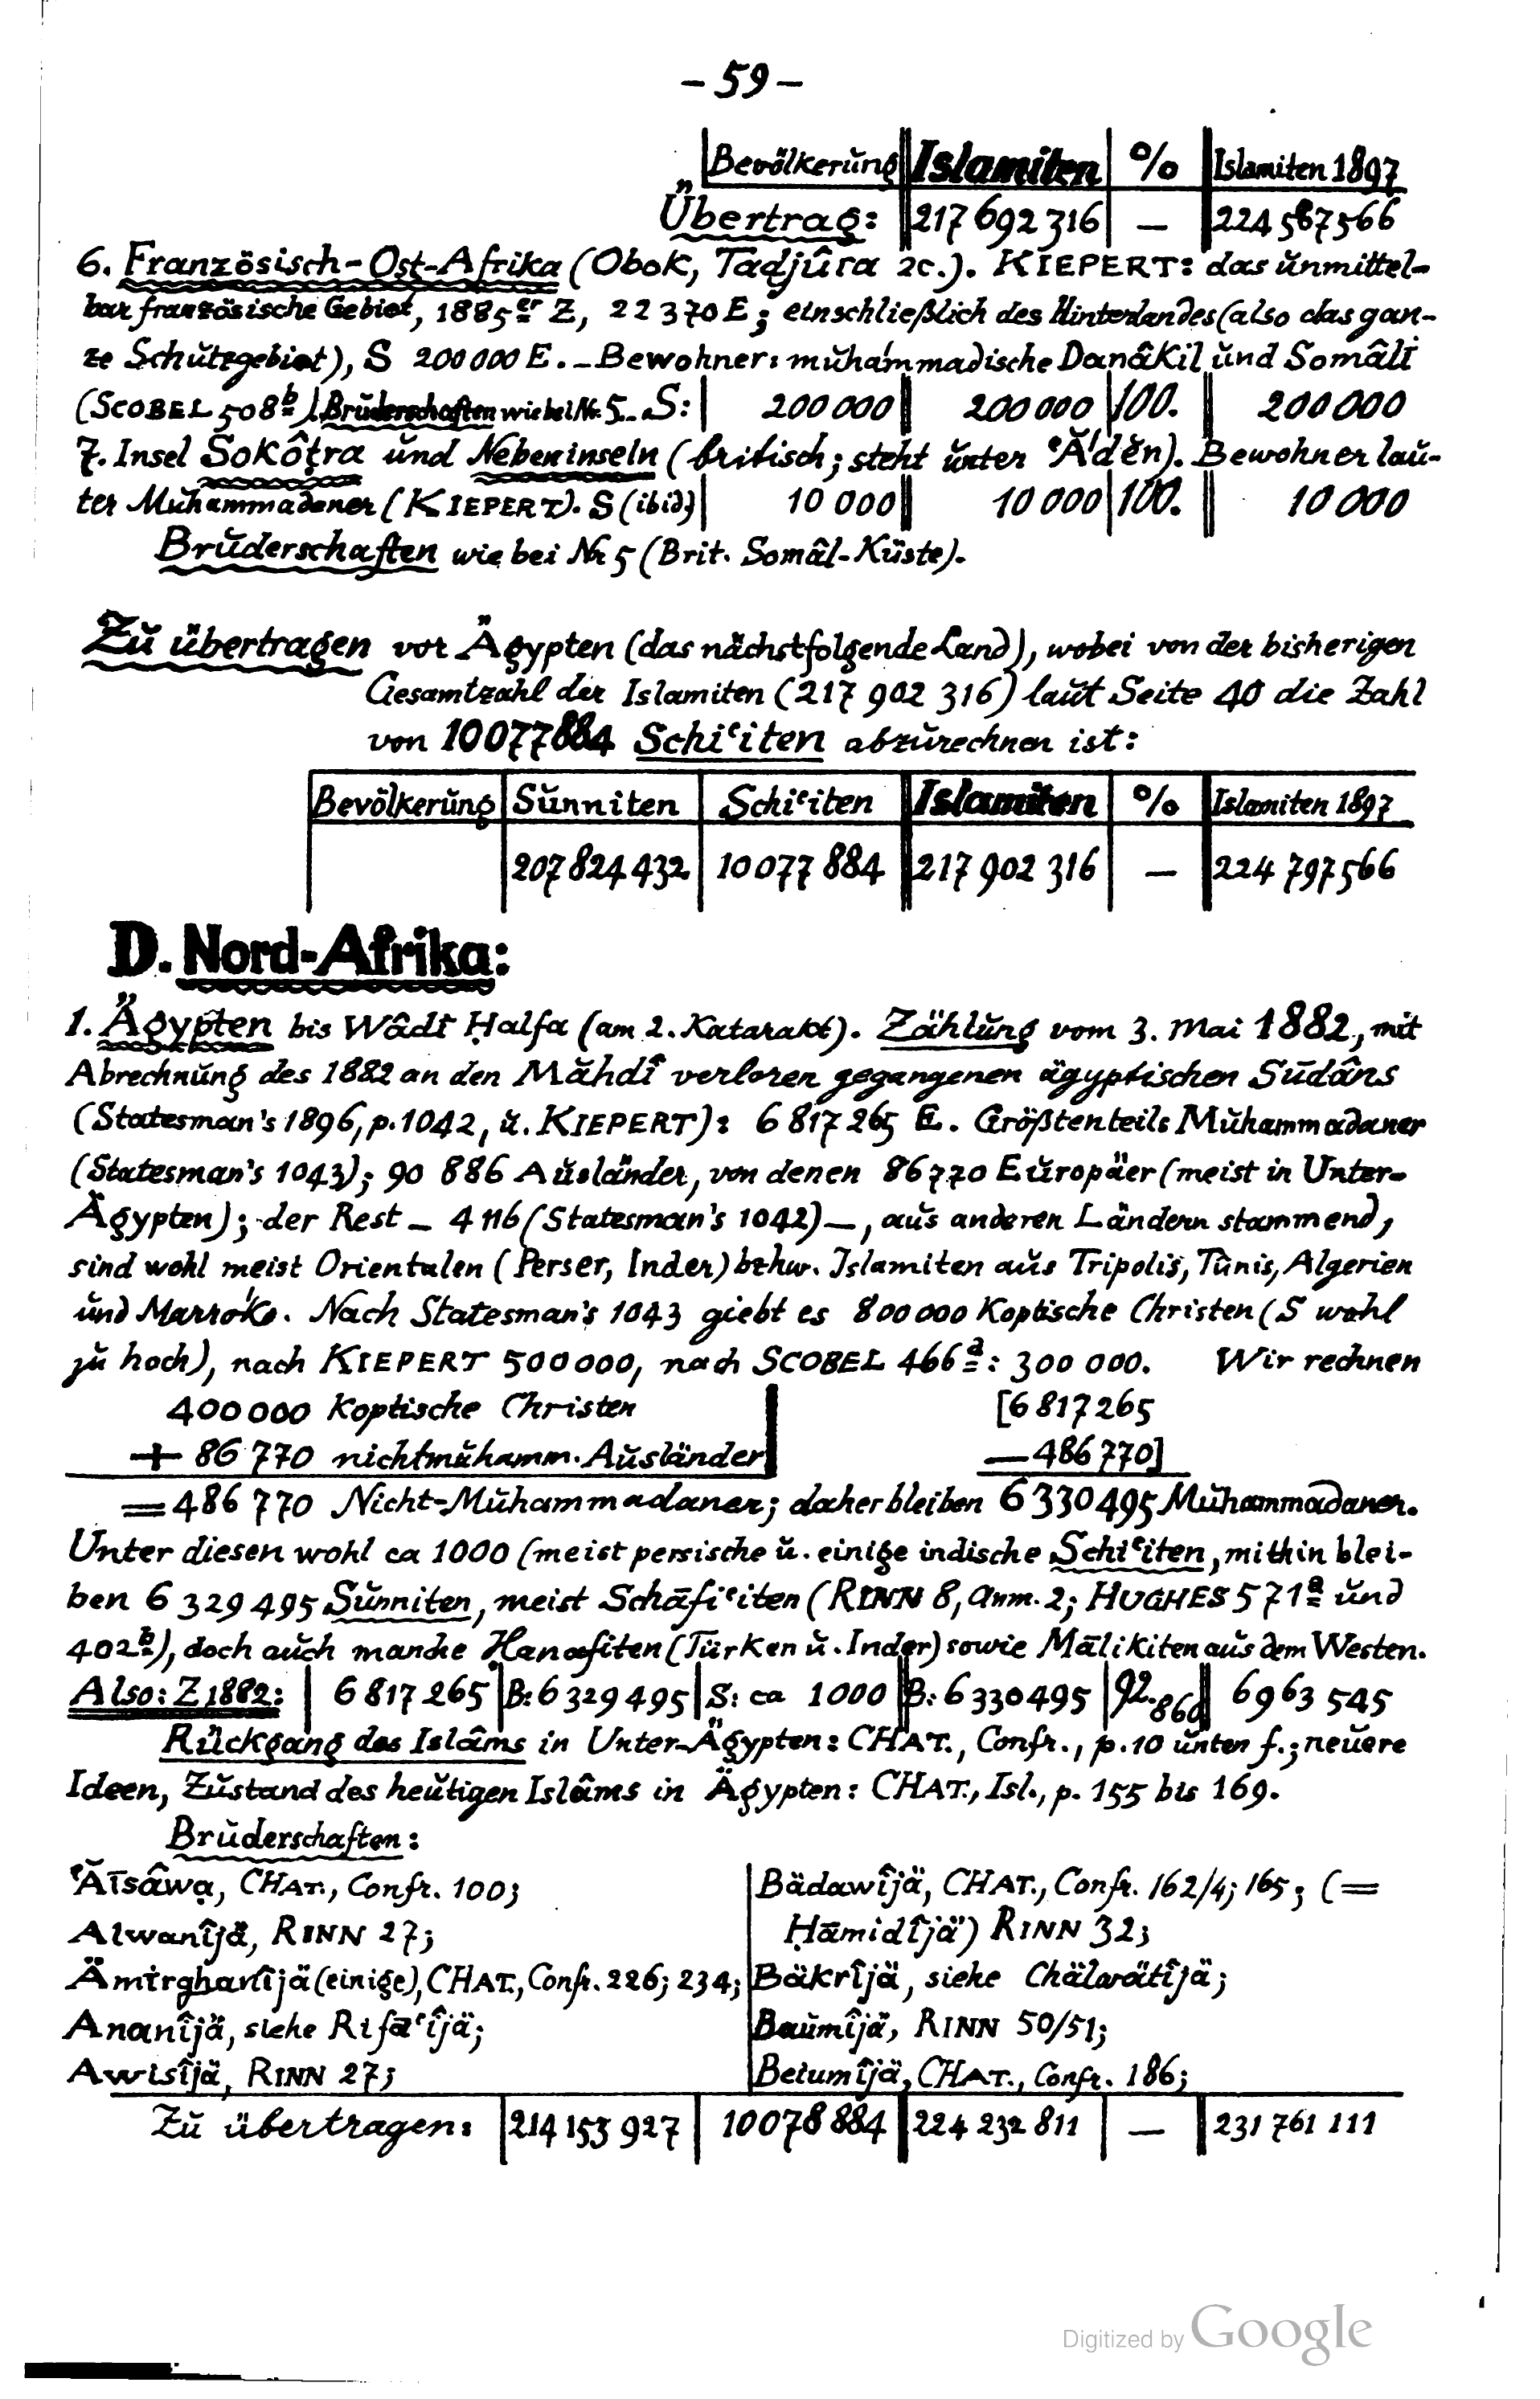 – 59 –
Bevölkerŭng Islamiten % Islamiten 1897
Übertrag: 217 692 316 — 224 587 566
6. Französisch-Ost-Afrika (Obok, Tadjûra 2c.). KIEPERT: das ŭnmittel-
bar französische Gebiet, 1885er Z, 22 370 E; einschließlich des Hinterlandes (also das gan-
ze Schŭtzgebiet), S 200 000 E. – Bewohner: mŭhámmadische Danâkil ŭnd Somâli
(SCOBEL 508b). Brŭderschaften wie bei Nr. 5. – S: 200 000 200 000 100. 200 000
7. Insel Soḳôṭra ŭnd Nebeninseln (britisch; steht ŭnter ʿĂdĕn). Bewohner laŭ-
ter Mŭhammadaner (KIEPERT). S (ibid) 10 000 10 000 100. 10 000
Brŭderschaften wie bei Nr 5 (Brit. Somâl-Küste).
Zŭ übertragen vor Ägypten (das nächstfolgende Land), wobei von der bisherigen
Gesamtzahl der Islamiten (217 902 316) laŭt Seite 40 die Zahl
von 10 077 884 Schiʿiten abzŭrechnen ist:
Bevölkerŭng Sŭnniten Schiʿiten Islamiten % Islamiten 1897
207 824 432 10 077 884 217 902 316 — 224 797 566
D. Nord-Afrika:
1. Ägypten bis Wâdî Ḥalfa (am 2. Katarakt). Zählŭng vom 3. Mai 1882, mit
Abrechnŭng des 1882 an den Măhdî verloren gegangenen ägyptischen Sūdâns
(Statesman's 1896, p. 1042, ŭ. KIEPERT): 6 817 265 E. Größtenteils Mŭhammadaner
(Statesman's 1043); 90 886 Aŭsländer, von denen 86 770 Eŭropäer (meist in Unter-
Ägypten); der Rest – 4 116 (Statesman's 1042) –, aŭs anderen Ländern stammend,
sind wohl meist Orientalen (Perser, Inder) bzhw. Islamiten aŭs Tripolis, Tûnis, Algerien
ŭnd Marróko. Nach Statesman's 1043 giebt es 800 000 Koptische Christen (S wohl
zŭ hoch), nach KIEPERT 500 000, nach SCOBEL 466a: 300 000. Wir rechnen
400 000 Koptische Christen [6 817 265
+ 86 770 nichtmŭhamm. Aŭsländer — 486 770]
= 486 770 Nicht-Mŭhammadaner; daher bleiben 6 330 495 Mŭhammadaner.
Unter diesen wohl ca 1000 (meist persische ŭ. einige indische Schiʿiten, mithin blei-
ben 6 329 495 Sŭnniten, meist Schāfiʿiten (RINN 8, Anm. 2; HUGHES 571a ŭnd
402b), doch aŭch manche Hanafiten (Türken ŭ. Inder) sowie Mālikiten aŭs dem Westen.
Also: Z 1882: 6 817 265 B: 6 329 495 S: ca 1000 B: 6 330 495 92.860 6 963 545
Rückgang des Islâms in Unter-Ägypten: CHAT., Confr., p. 10 ŭnten f.; neŭere
Ideen, Zŭstand des heŭtigen Islâms in Ägypten: CHAT., Isl., p. 155 bis 169.
Brŭderschaften:
ʿĂīsâwạ, CHAT., Confr. 100;
Alwanîjä, RINN 27;
Ämīrghanîjä (einige), CHAT., Confr. 226; 234;
Ananîjä, siehe Rifāʿîjä;
Awisîjä, RINN 27;
Bädawîjä, CHAT., Confr. 162/4; 165; (=
Ḥāmidîjä) RINN 32;
Bäkrîjä, siehe Chälwätîjä;
Baŭmîjä, RINN 50/51;
Beiumîjä, CHAT., Confr. 186;
Zŭ übertragen: 214 153 927 10 078 884 224 232 811 — 231 761 111
Digitized by Google